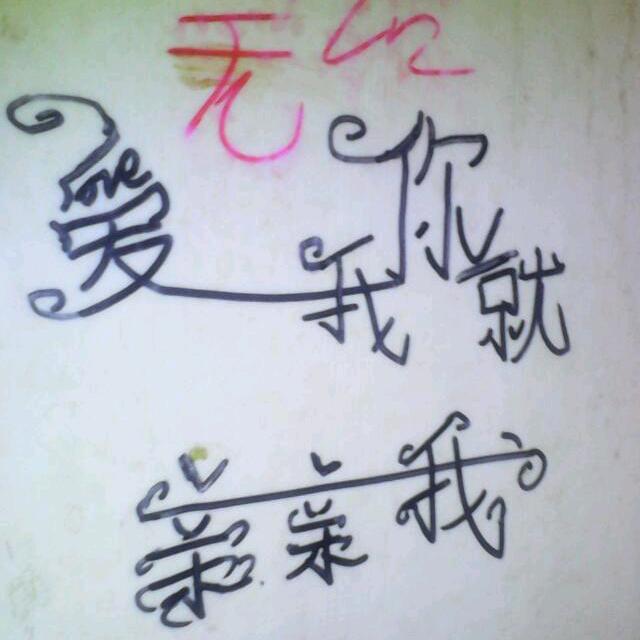 无
love
爱我你就
亲亲我